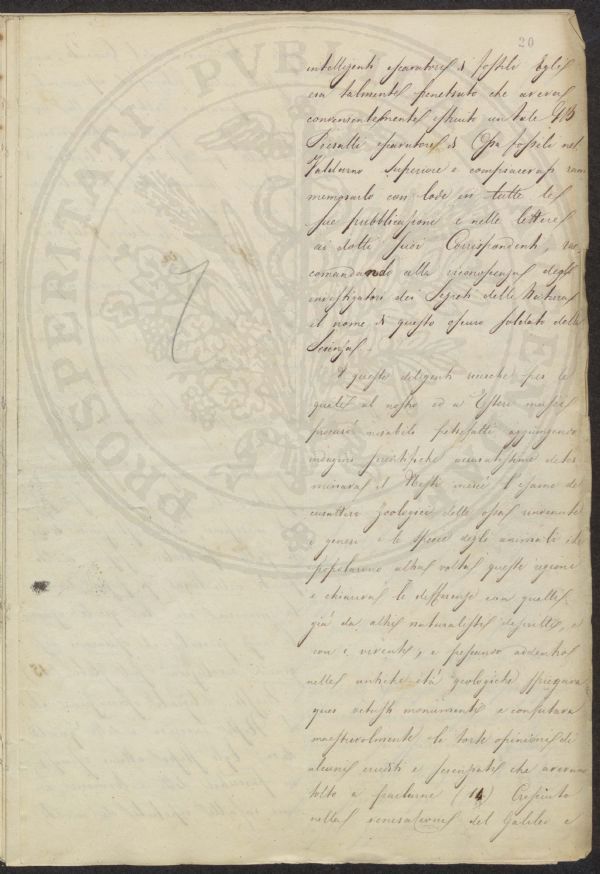 20
intelligenti escavatori di fossili Egli
era talmente penetrato che aveva
convenientemente istruito un tale GB
escavatore di Ossa fossili nel
Valdarno Superiore e compiacevasi ram
memorarlo con lode in tutte le
sue pubblicazioni e nelle lettere
ai dotti suoi Corrispondenti, rac
comandando alla riconoscenza degli
investigatori dei Segreti della Natura
il nome di questo oscuro soldato della
Scienza.
A queste diligenti ricerche per le
quali al nostro ed a Esteri musei
procurò notabili petrefatti aggiungendo
indagini scientifiche accuratissime deter
minava il Nesti mercè l'esame dei
caratteri zoologici delle ossa rinvenute
i generi e le specie degli animali che
popolarono altra volta queste regioni
e chiariva le differenze con quelli
già da altri naturalisti descritti, e
con i viventi, e pensando addentro
nelle antiche età geologiche spiegava
quei vetusti monumenti e confutava
maestrevolmente le torte opinioni di
alcuni eruditi e scienziati che avevano
tolto a parlarne (14) Cresciuto
nella venerazione del Galileo e
15
PROSPERITATI PVBLI